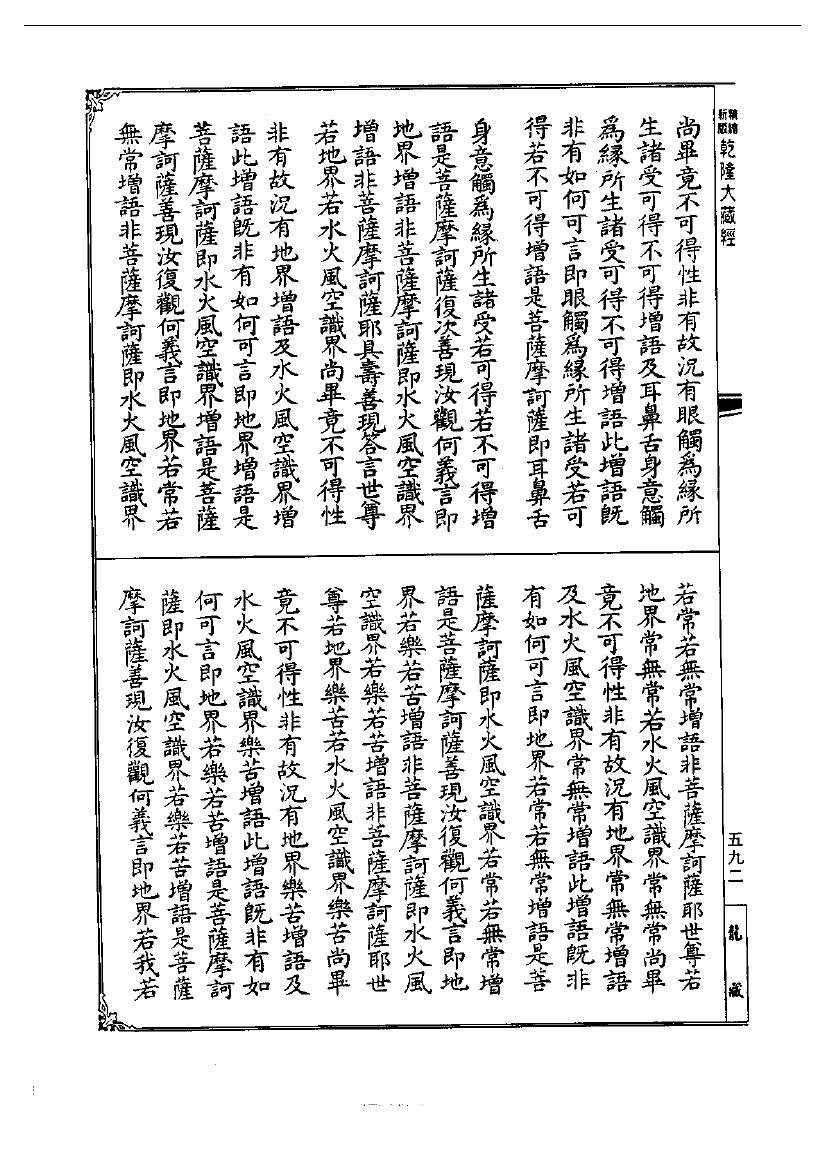 精繪
新版
乾隆大藏經
尚畢竟不可得性非有故況有眼觸為緣所
生諸受可得不可得增語及耳鼻舌身意觸
為緣所生諸受可得不可得增語此增語既
非有如何可言即眼觸為緣所生諸受若可
得若不可得增語是菩薩摩訶薩即耳鼻舌
身意觸為緣所生諸受若可得若不可得增
語是菩薩摩訶薩復次善現汝觀何義言即
地界增語非菩薩摩訶薩即水火風空識界
增語非菩薩摩訶薩耶具壽善現答言世尊
若地界若水火風空識界尚畢竟不可得性
非有故況有地界增語及水火風空識界增
語此增語既非有如何可言即地界增語是
菩薩摩訶薩即水火風空識界增語是菩薩
摩訶薩善現汝復觀何義言即地界若常若
無常增語非菩薩摩訶薩即水火風空識界
若常若無常增語非菩薩摩訶薩耶世尊若
地界常無常若水火風空識界常無常尚畢
竟不可得性非有故況有地界常無常增語
及水火風空識界常無常增語此增語既非
有如何可言即地界若常若無常增語是菩
薩摩訶薩即水火風空識界若常若無常增
語是菩薩摩訶薩善現汝復觀何義言即地
界若樂若苦增語非菩薩摩訶薩即水火風
空識界若樂若苦增語非菩薩摩訶薩耶世
尊若地界樂苦若水火風空識界樂苦尚畢
竟不可得性非有故況有地界樂苦增語及
水火風空識界樂苦增語此增語既非有如
何可言即地界若樂若苦增語是菩薩摩訶
薩即水火風空識界若樂若苦增語是菩薩
摩訶薩善現汝復觀何義言即地界若我若
五九二
龍藏